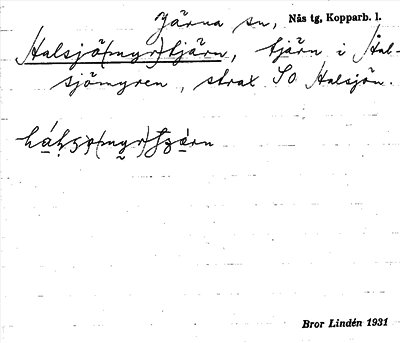 Järna sn, Nås tg, Kopparb. l.
Halsjö(myr)tjärn, tjärn i Hal-
sjömyren, strax SO Halsjön.
Bror Lindén 1931